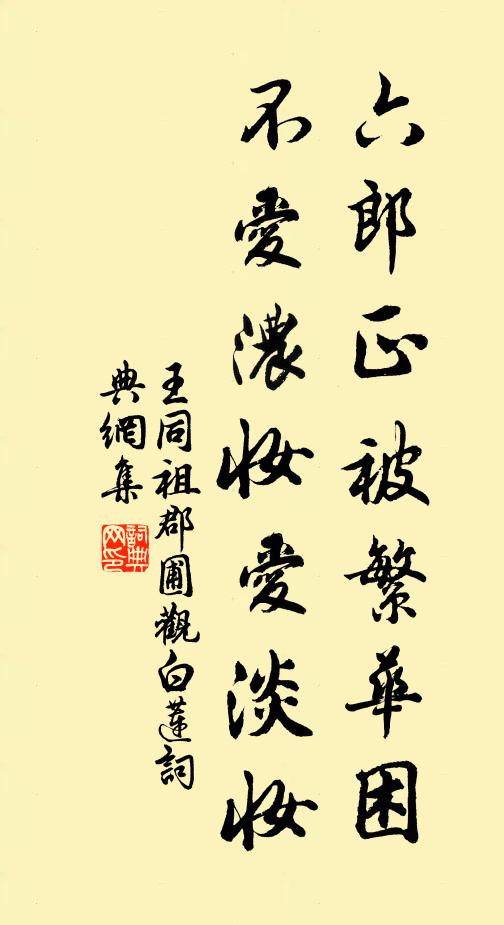 六郎正被繁華困
不愛濃妝愛淡妝
王同祖郡圃觀白蓮詞
典網集
詞典
网印